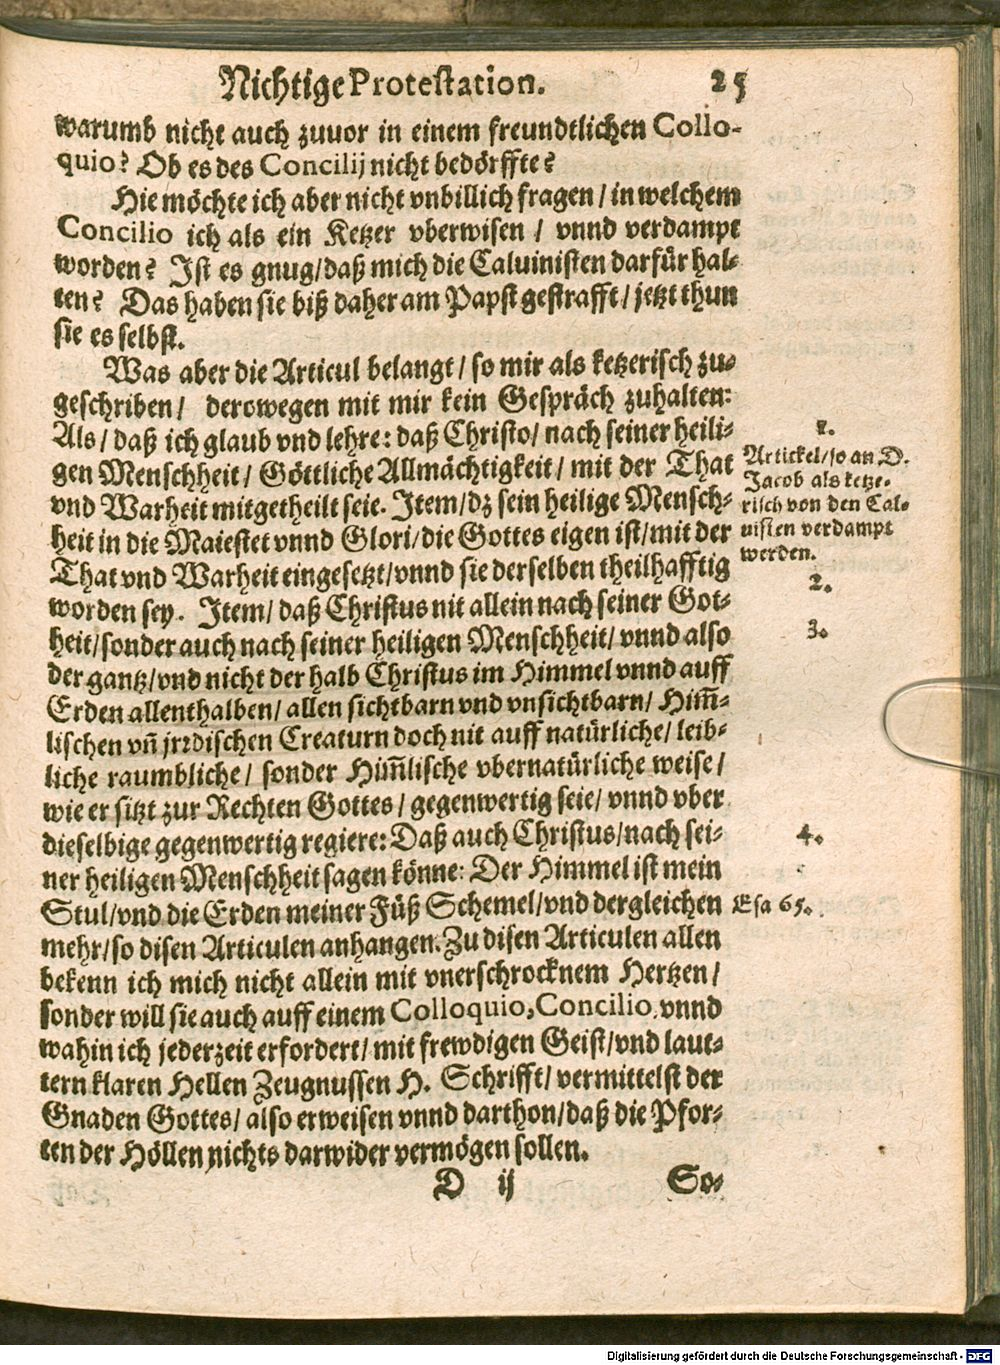 Nichtige Protestation. 25
warumb nicht auch zuuor in einem freundtlichen Collo-
quio? Ob es des Concilij nicht bedörffte?
Hie möchte ich aber nicht vnbillich fragen / in welchem
Concilio ich als ein Ketzer vberwisen / vnnd verdampt
worden? Ist es gnug/daß mich die Caluinisten darfür hal-
ten? Das haben sie biß daher am Papst gestrafft / jetzt thun
sie es selbst.
Was aber die Articul belangt / so mir als ketzerisch zu-
geschriben / derowegen mit mir kein Gespräch zuhalten:
Als / daß ich glaub vnd lehre: daß Christo / nach seiner heili-
gen Menschheit / Göttliche Allmächtigkeit / mit der That
vnd Warheit mitgetheilt seie. Item/dz sein heilige Mensch-
heit in die Maiestet vnnd Glori/die Gottes eigen ist/mit der
That vnd Warheit eingesetzt/vnnd sie derselben theilhafftig
worden sey. Item/ daß Christus nit allein nach seiner Got-
heit/sonder auch nach seiner heiligen Menschheit/ vnnd also
der gantz/vnd nicht der halb Christus im Himmel vnnd auff
Erden allenthalben/ allen sichtbarn vnd vnsichtbarn/ Him̃-
lischen vñ jrrdischen Creaturn doch nit auff natürliche/ leib-
liche raumbliche/ sonder Him̃lische vbernatürliche weise/
wie er sitzt zur Rechten Gottes / gegenwertig seie/ vnnd vber
dieselbige gegenwertig regiere: Daß auch Christus/nach sei-
ner heiligen Menschheit sagen könne: Der Himmel ist mein
Stul/vnd die Erden meiner Füß Schemel/vnd dergleichen
mehr/so disen Articulen anhangen. Zu disen Articulen allen
bekenn ich mich nicht allein mit vnerschrocknem Hertzen /
sonder will sie auch auff einem Colloquio, Concilio, vnnd
wahin ich jederzeit erfordert/ mit frewdigen Geist/vnd laut-
tern klaren Hellen Zeugnussen H. Schrifft/ vermittelst der
Gnaden Gottes/ also erweisen vnnd darthon/daß die Pfor-
ten der Höllen nichts darwider vermögen sollen.
D ij So-
1.
Artickel/so an D.
Jacob als ketze-
risch von den Cal-
uisten verdampt
werden.
2.
3.
4.
Esa 65.
Digitalisierung gefördert durch die Deutsche Forschungsgemeinschaft - DFG